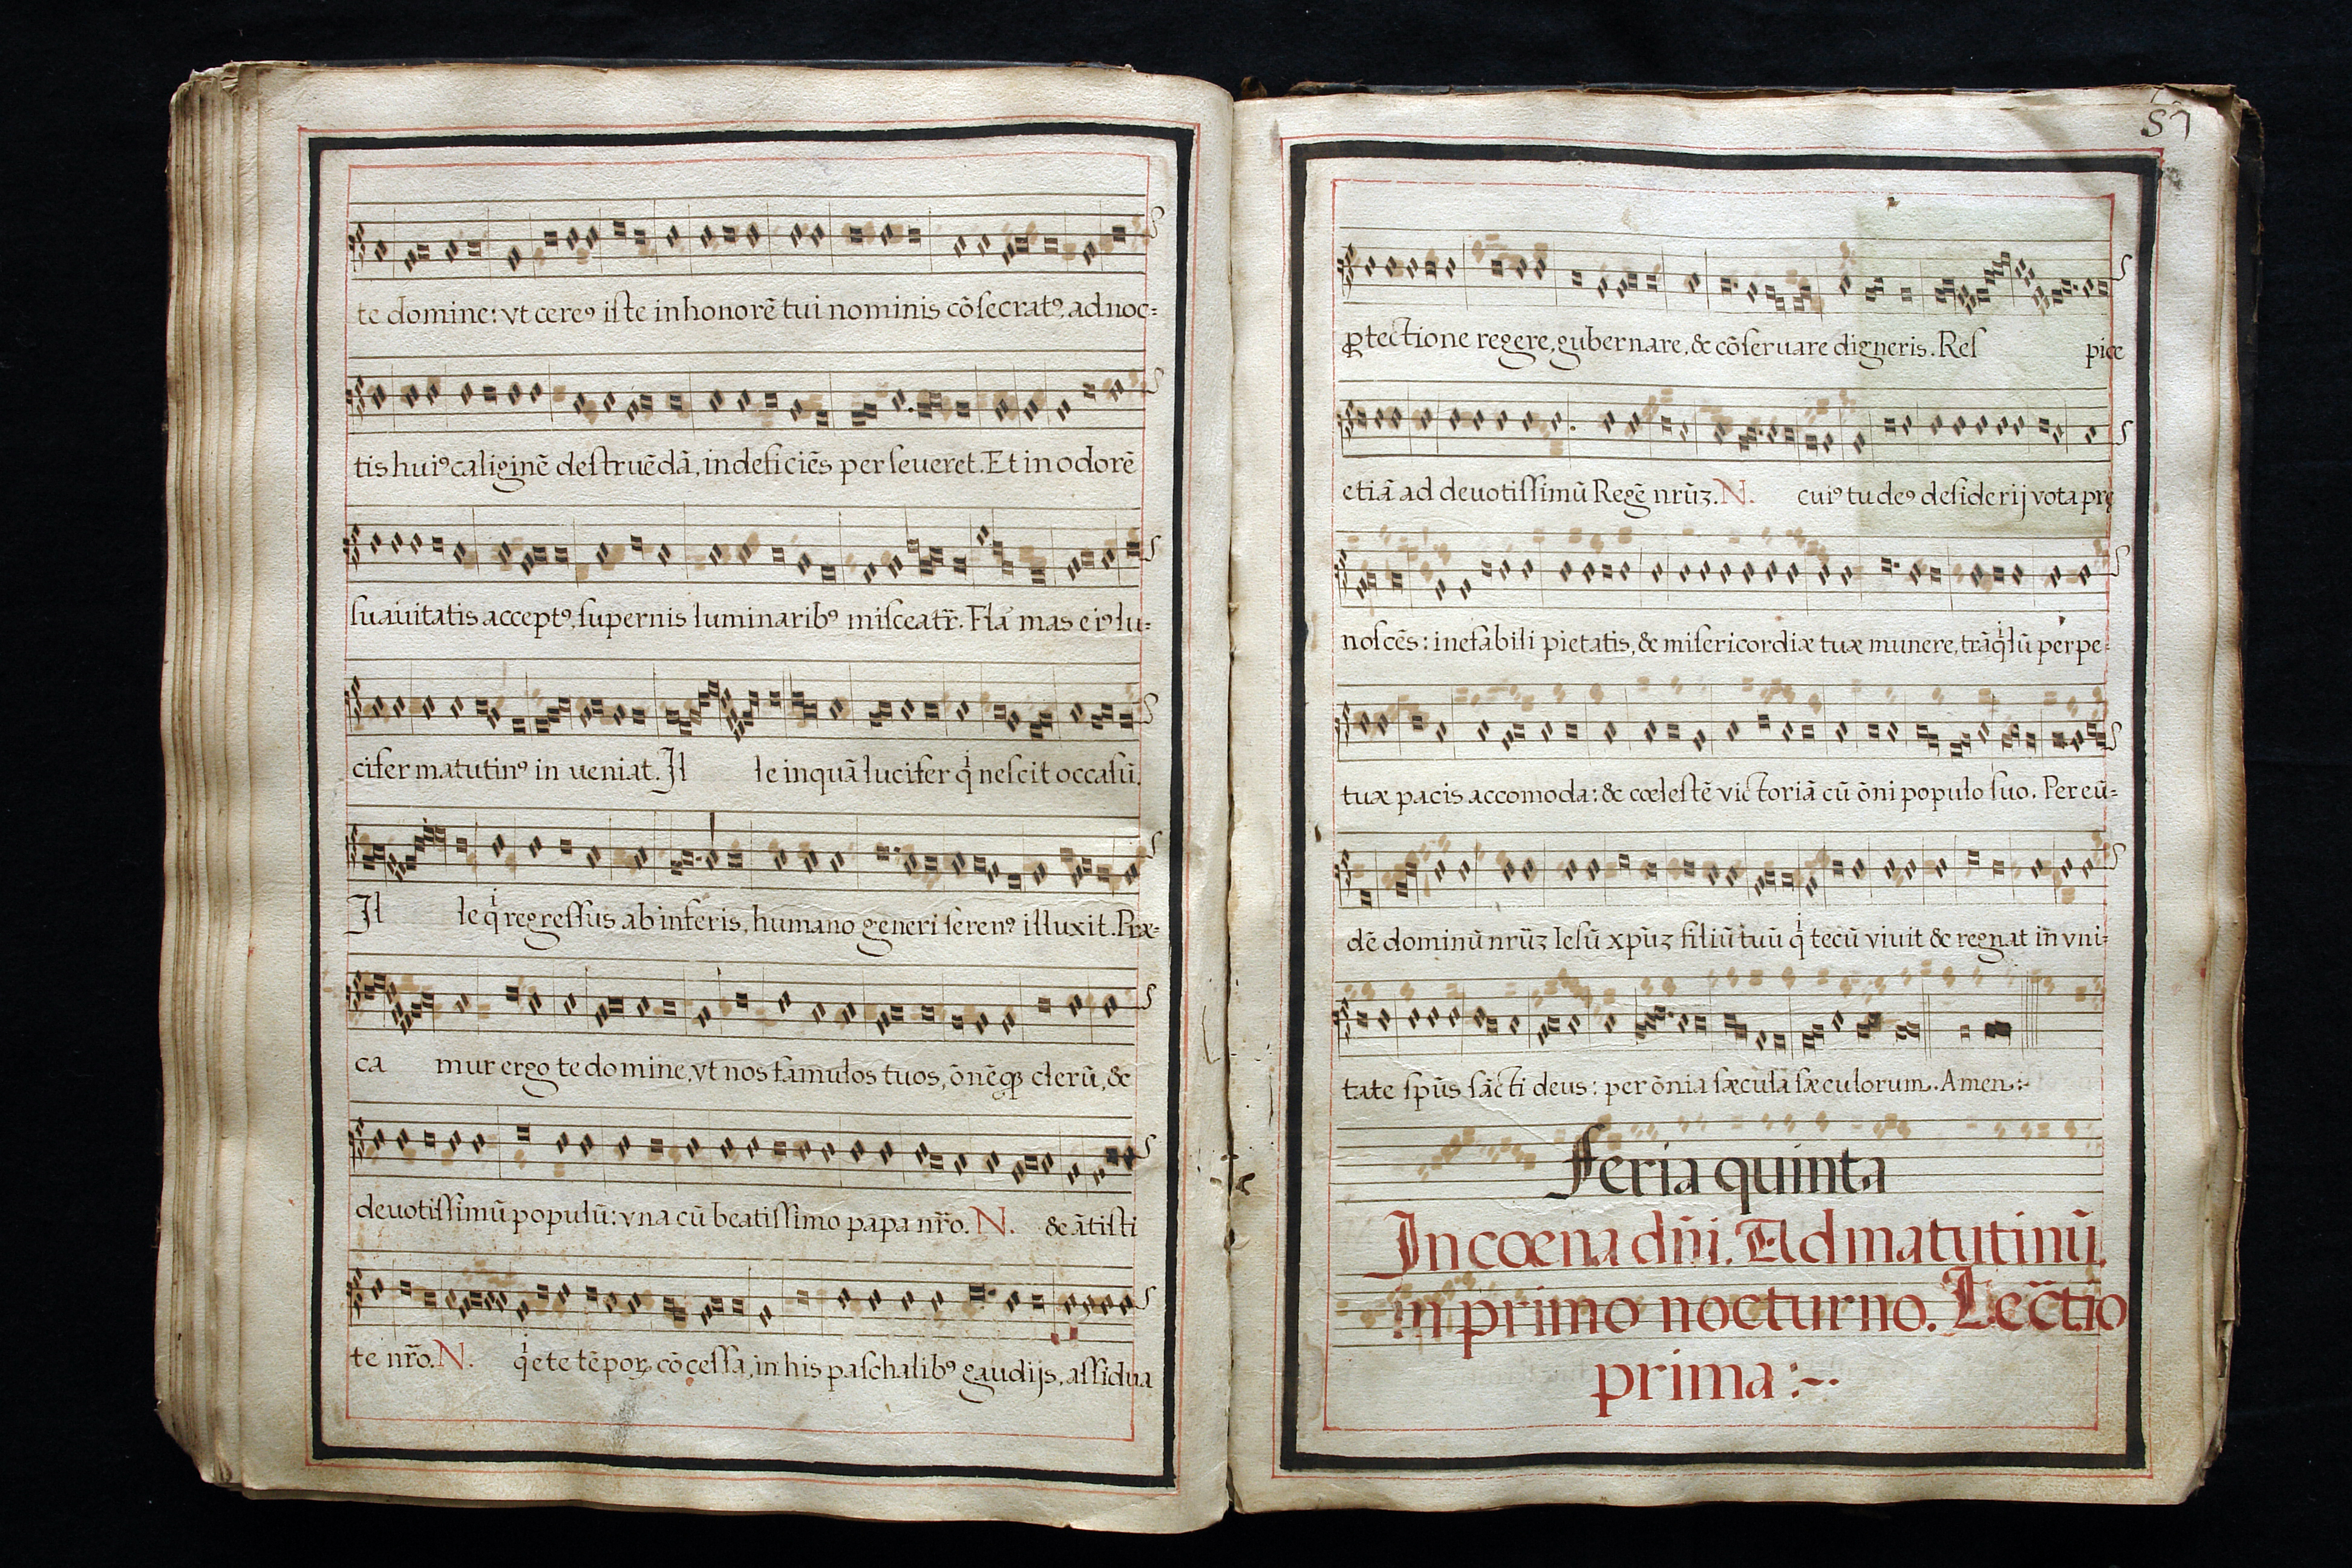 te domine: vt cereꝰ iſte in honorē tui nominis cōſecratꝰ, ad noc=
tis huiꝰ caliginē deſtruēdā, indeficiēs perſeueret. Et in odorē
ſuauitatis acceptꝰ, ſupernis luminaribꝰ miſceatr̃. Flā mas eiꝰ lu=
cifer matutinꝰ in ueniat. Il le inquā lucifer qͥ neſcit occaſū.
Il le qͥ regreſſus ab inferis, humano generi ſerenꝰ illuxit. Præ=
ca mur ergo te domine, vt nos famulos tuos, ōnēqꝫ clerū, &
deuotiſſimū populū: vna cū beatiſſimo papa nr̃o. N. & ātiſti
te nr̃o. N. qͥete tēporꝫ cōçeſſa, in his paſchalibꝰ gaudijs, aſſidua
57
ꝓtectione regere, gubernare, & cōſeruare digneris. Reſ pice
etiā ad deuotiſſimū Regē nrūꝫ. N. cuiꝰ tu deꝰ deſiderij vota prę
noſcēs: inefabili pietatis, & miſericordiæ tuæ munere, trāqͥlū perpe=
tuæ pacis accomoda: & cœleſtē victoriā cū ōni populo ſuo. Per eū=
dē dominū nrūꝫ Ieſū xp̄ūꝫ filiū tuū qͥ tecū viuit & regnat in vni=
tate ſpūs ſācti deus: per ōnia ſæcula ſæculorum. Amen:~
Feria quinta
In cœna dñi. Ad matutinū.
in primo nocturno. Lectio
prima :~·